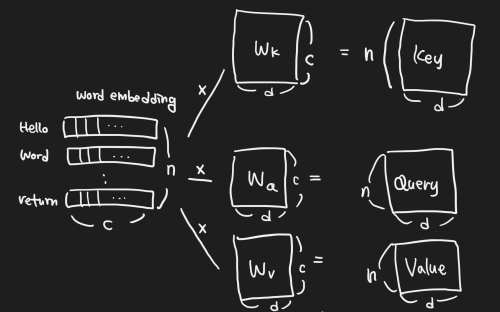 word embedding
Hello ...
word ...
:
return ...
n
c
x Wk c = n Key
d d
x Wa c = n Query
d d
x Wv c = n Value
d d